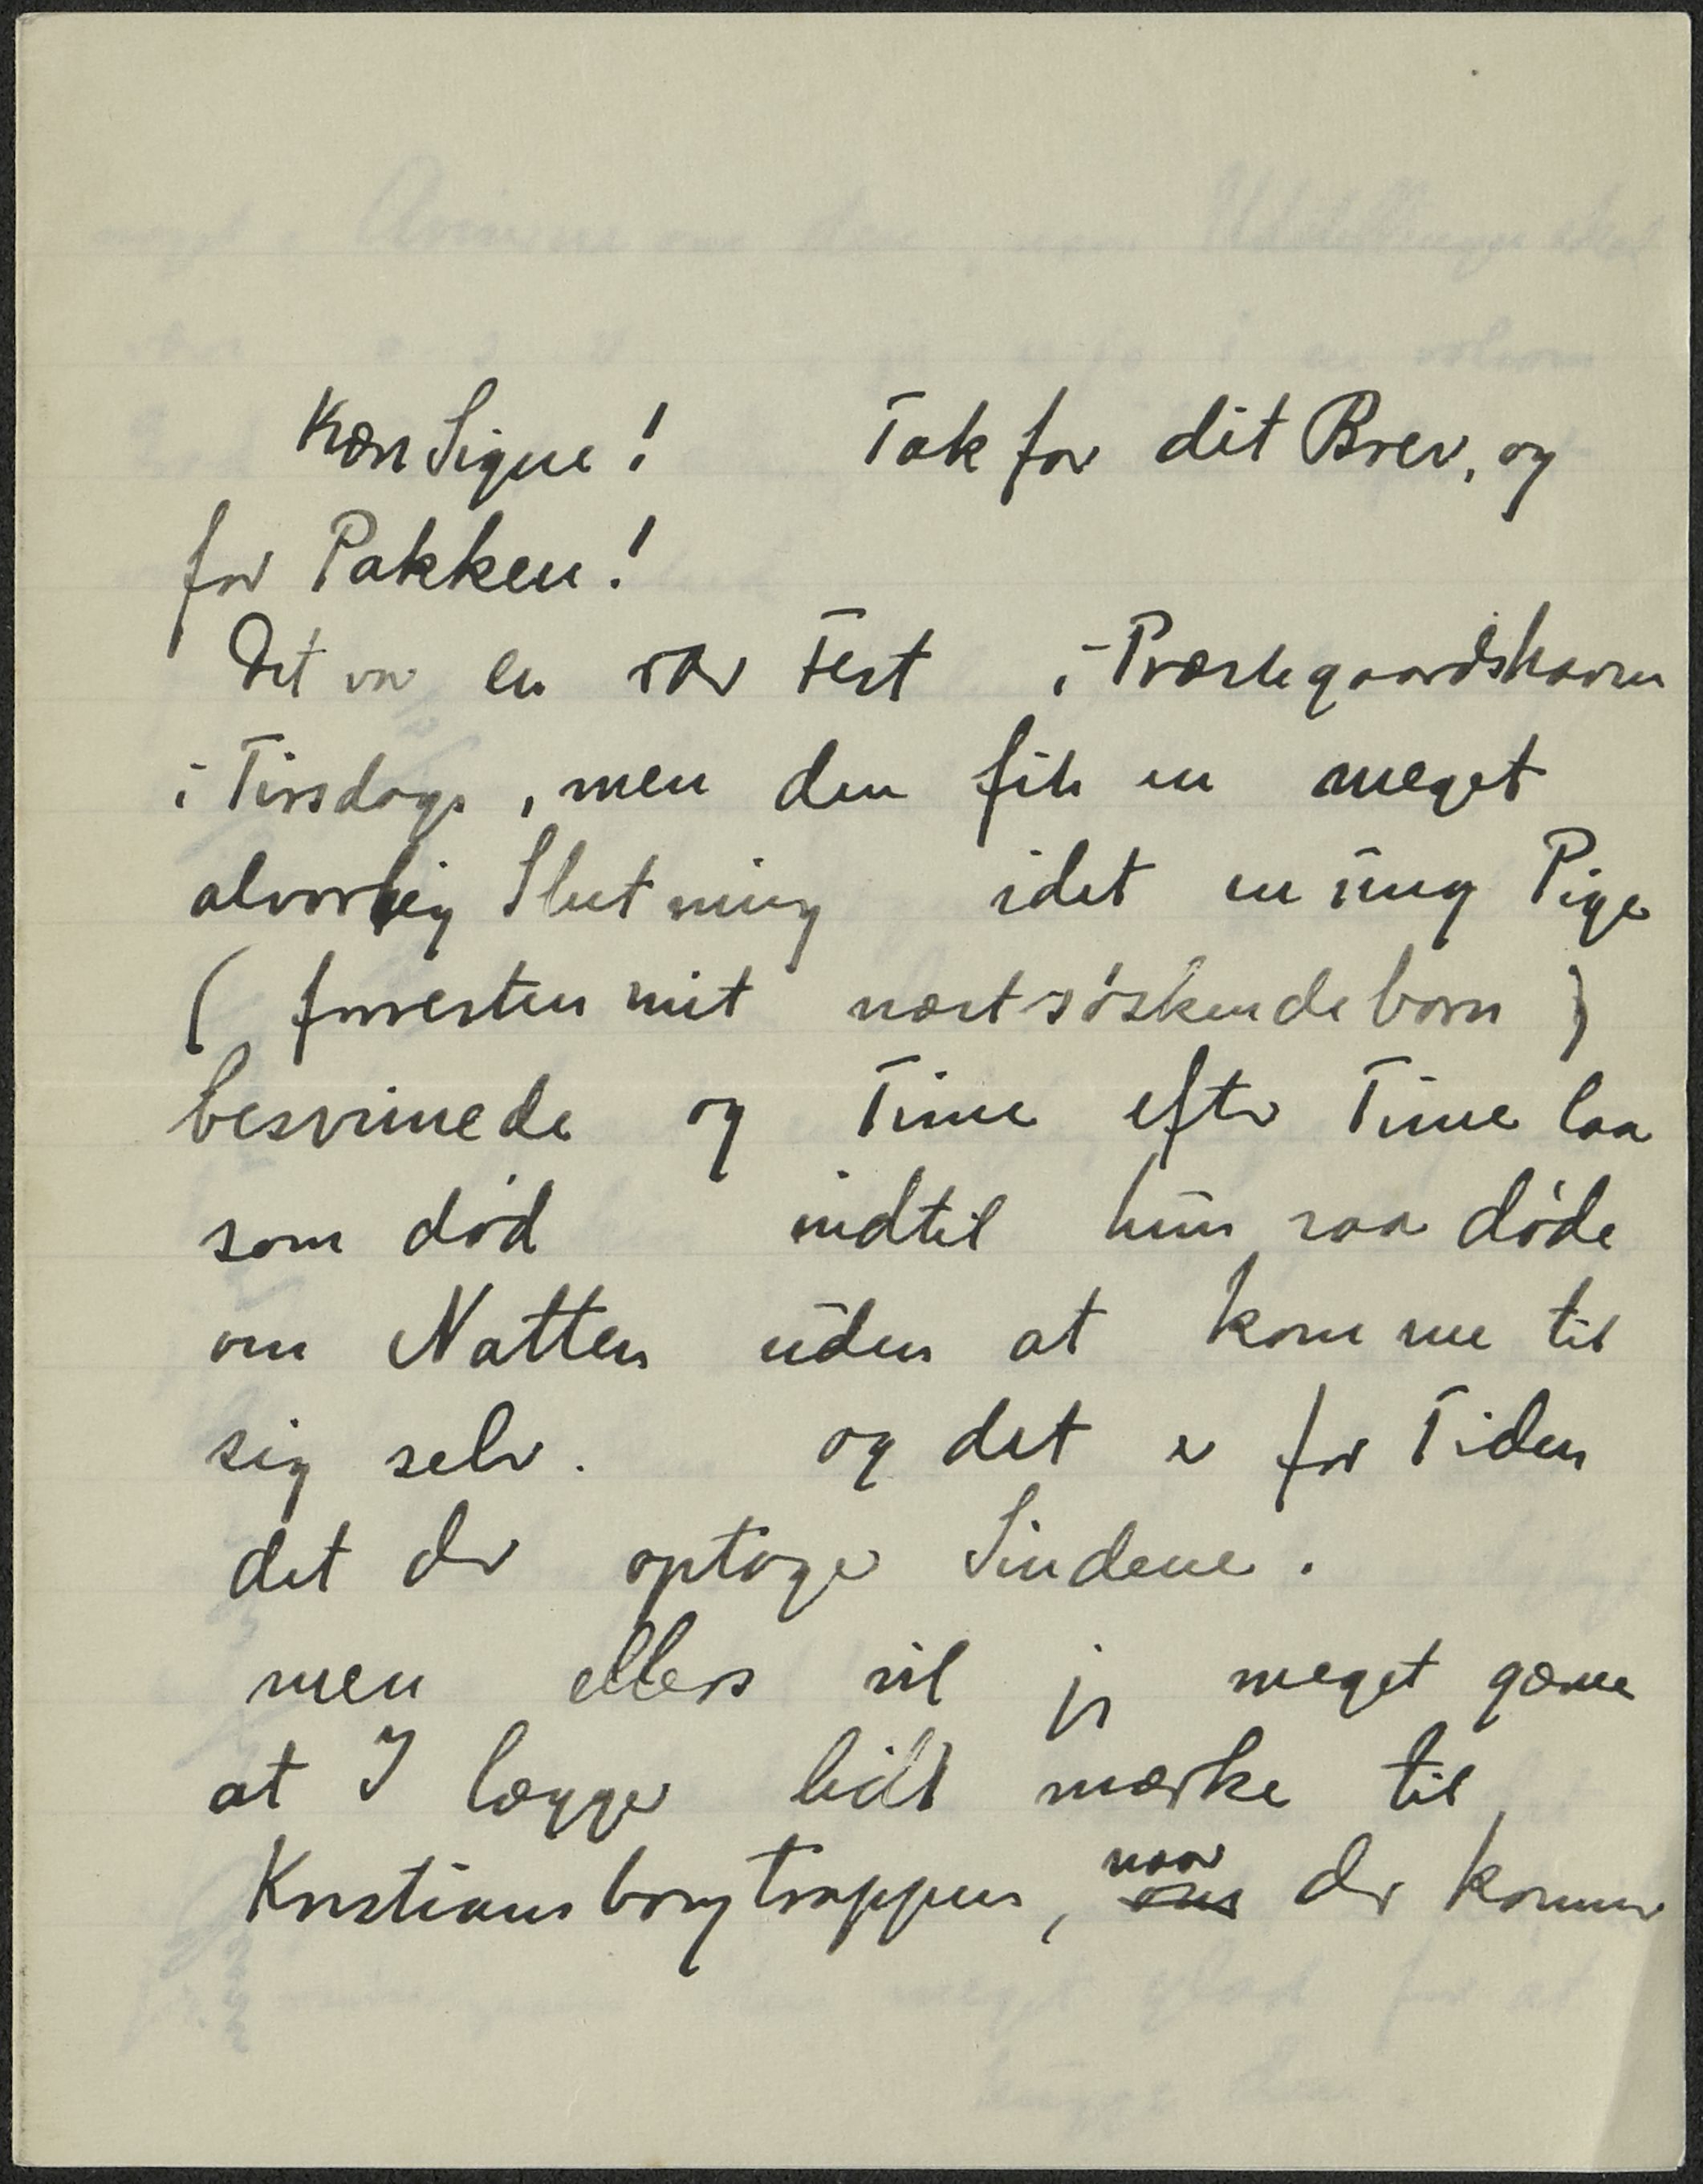 Kær Signe! Tak for dit Brev, og
for Pakken!
Det var en rar Fest i Præstegaardshaven
i Tirsdags, men den fik en meget
alvorlig Slutning idet en ung Pige
(forresten mit næstsøskendebarn)
besvimede og Time efter Time laa
som død indtil hun saa døde
om Natten uden at komme til
sig selv. og det er for Tiden
det der optager Sindene.
men ellers vil jeg meget gærne
at I lægger lidt mærke til
Kristiansborgtrappen, naar der kommer